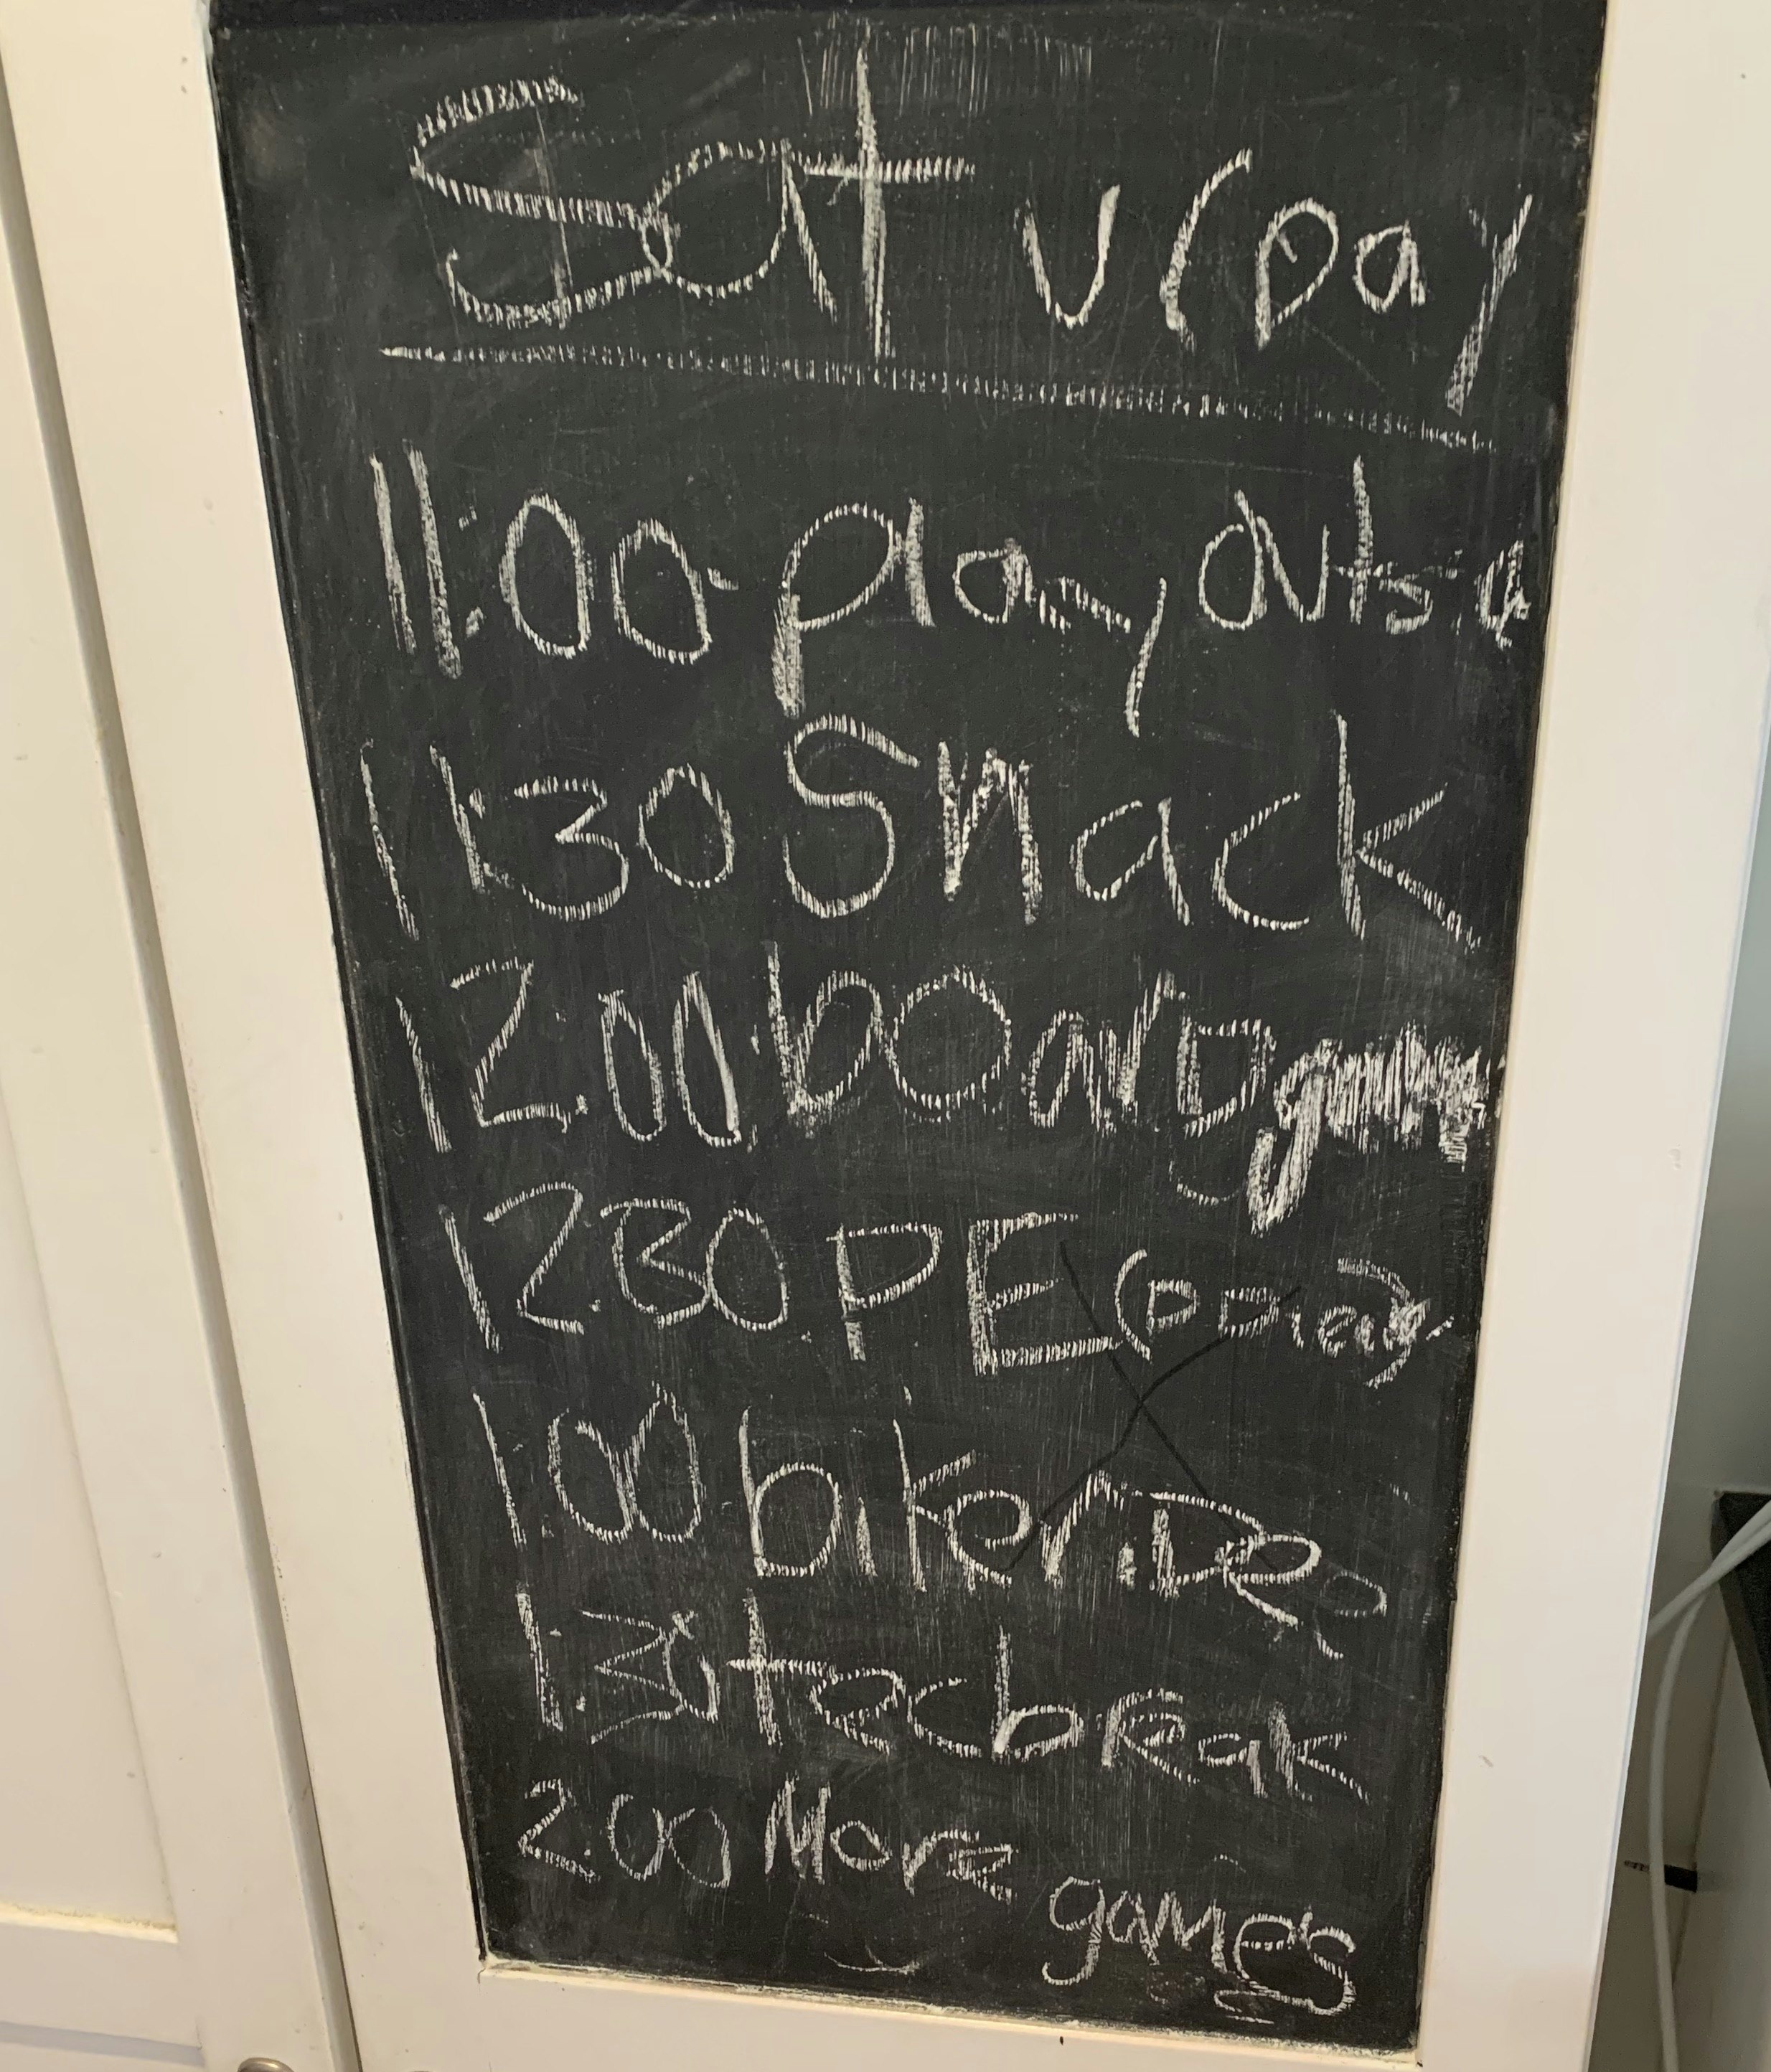 Saturday
11:00 play outsid
11:30 Snack
12.00 board game
12.30 PE
1.00 bike ride
1.30 tec break
2.00 More games